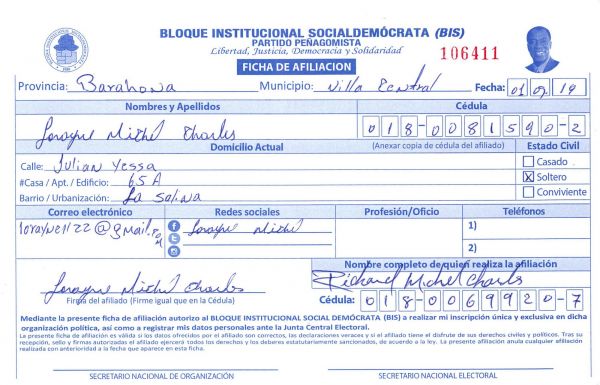 BLOQUE INSTITUCIONAL SOCIALDEMÓCRATA (BIS)
PARTIDO PEÑAGOMISTA
Libertad, Justicia, Democracia y Solidaridad
106411
FICHA DE AFILIACION
Provincia: Barahona Municipio: Villa Central Fecha: 01 09 19
Nombres y Apellidos Cédula
Lorayne Michel Charles 018-0081590-2
Domicilio Actual (Anexar copia de cédula del afiliado) Estado Civil
Calle: Julian Yessa
#Casa / Apt. / Edificio: 65 A
Barrio / Urbanización: La Salina
Casado
X Soltero
Conviviente
Correo electrónico Redes sociales Profesión/Oficio Teléfonos
lorayne1122@gmail.com Lorayne Michel 1)
2)
Nombre completo de quien realiza la afiliación
Lorayne Michel Charles Richard Michel Charles
Firma del afiliado (Firme igual que en la Cédula) Cédula: 018-0069920-7
Mediante la presente ficha de afiliación autorizo al BLOQUE INSTITUCIONAL SOCIAL DEMÓCRATA (BIS) a realizar mi inscripción única y exclusiva en dicha
organización política, así como a registrar mis datos personales ante la Junta Central Electoral.
La presente ficha de afiliación es válida si los datos ofrecidos por el afiliado son correctos, las declaraciones veraces y si el titular tiene el disfrute de sus derechos civiles y políticos. Tras su
recepción, sello y firmas autorizadas el afiliado ejercerá todos los derechos y los deberes estatutariamente sancionados, de acuerdo a la ley. La presente afiliación anula cualquier afiliación
realizada con anterioridad a la fecha que aparece en esta ficha.
SECRETARIO NACIONAL DE ORGANIZACIÓN SECRETARIO NACIONAL ELECTORAL